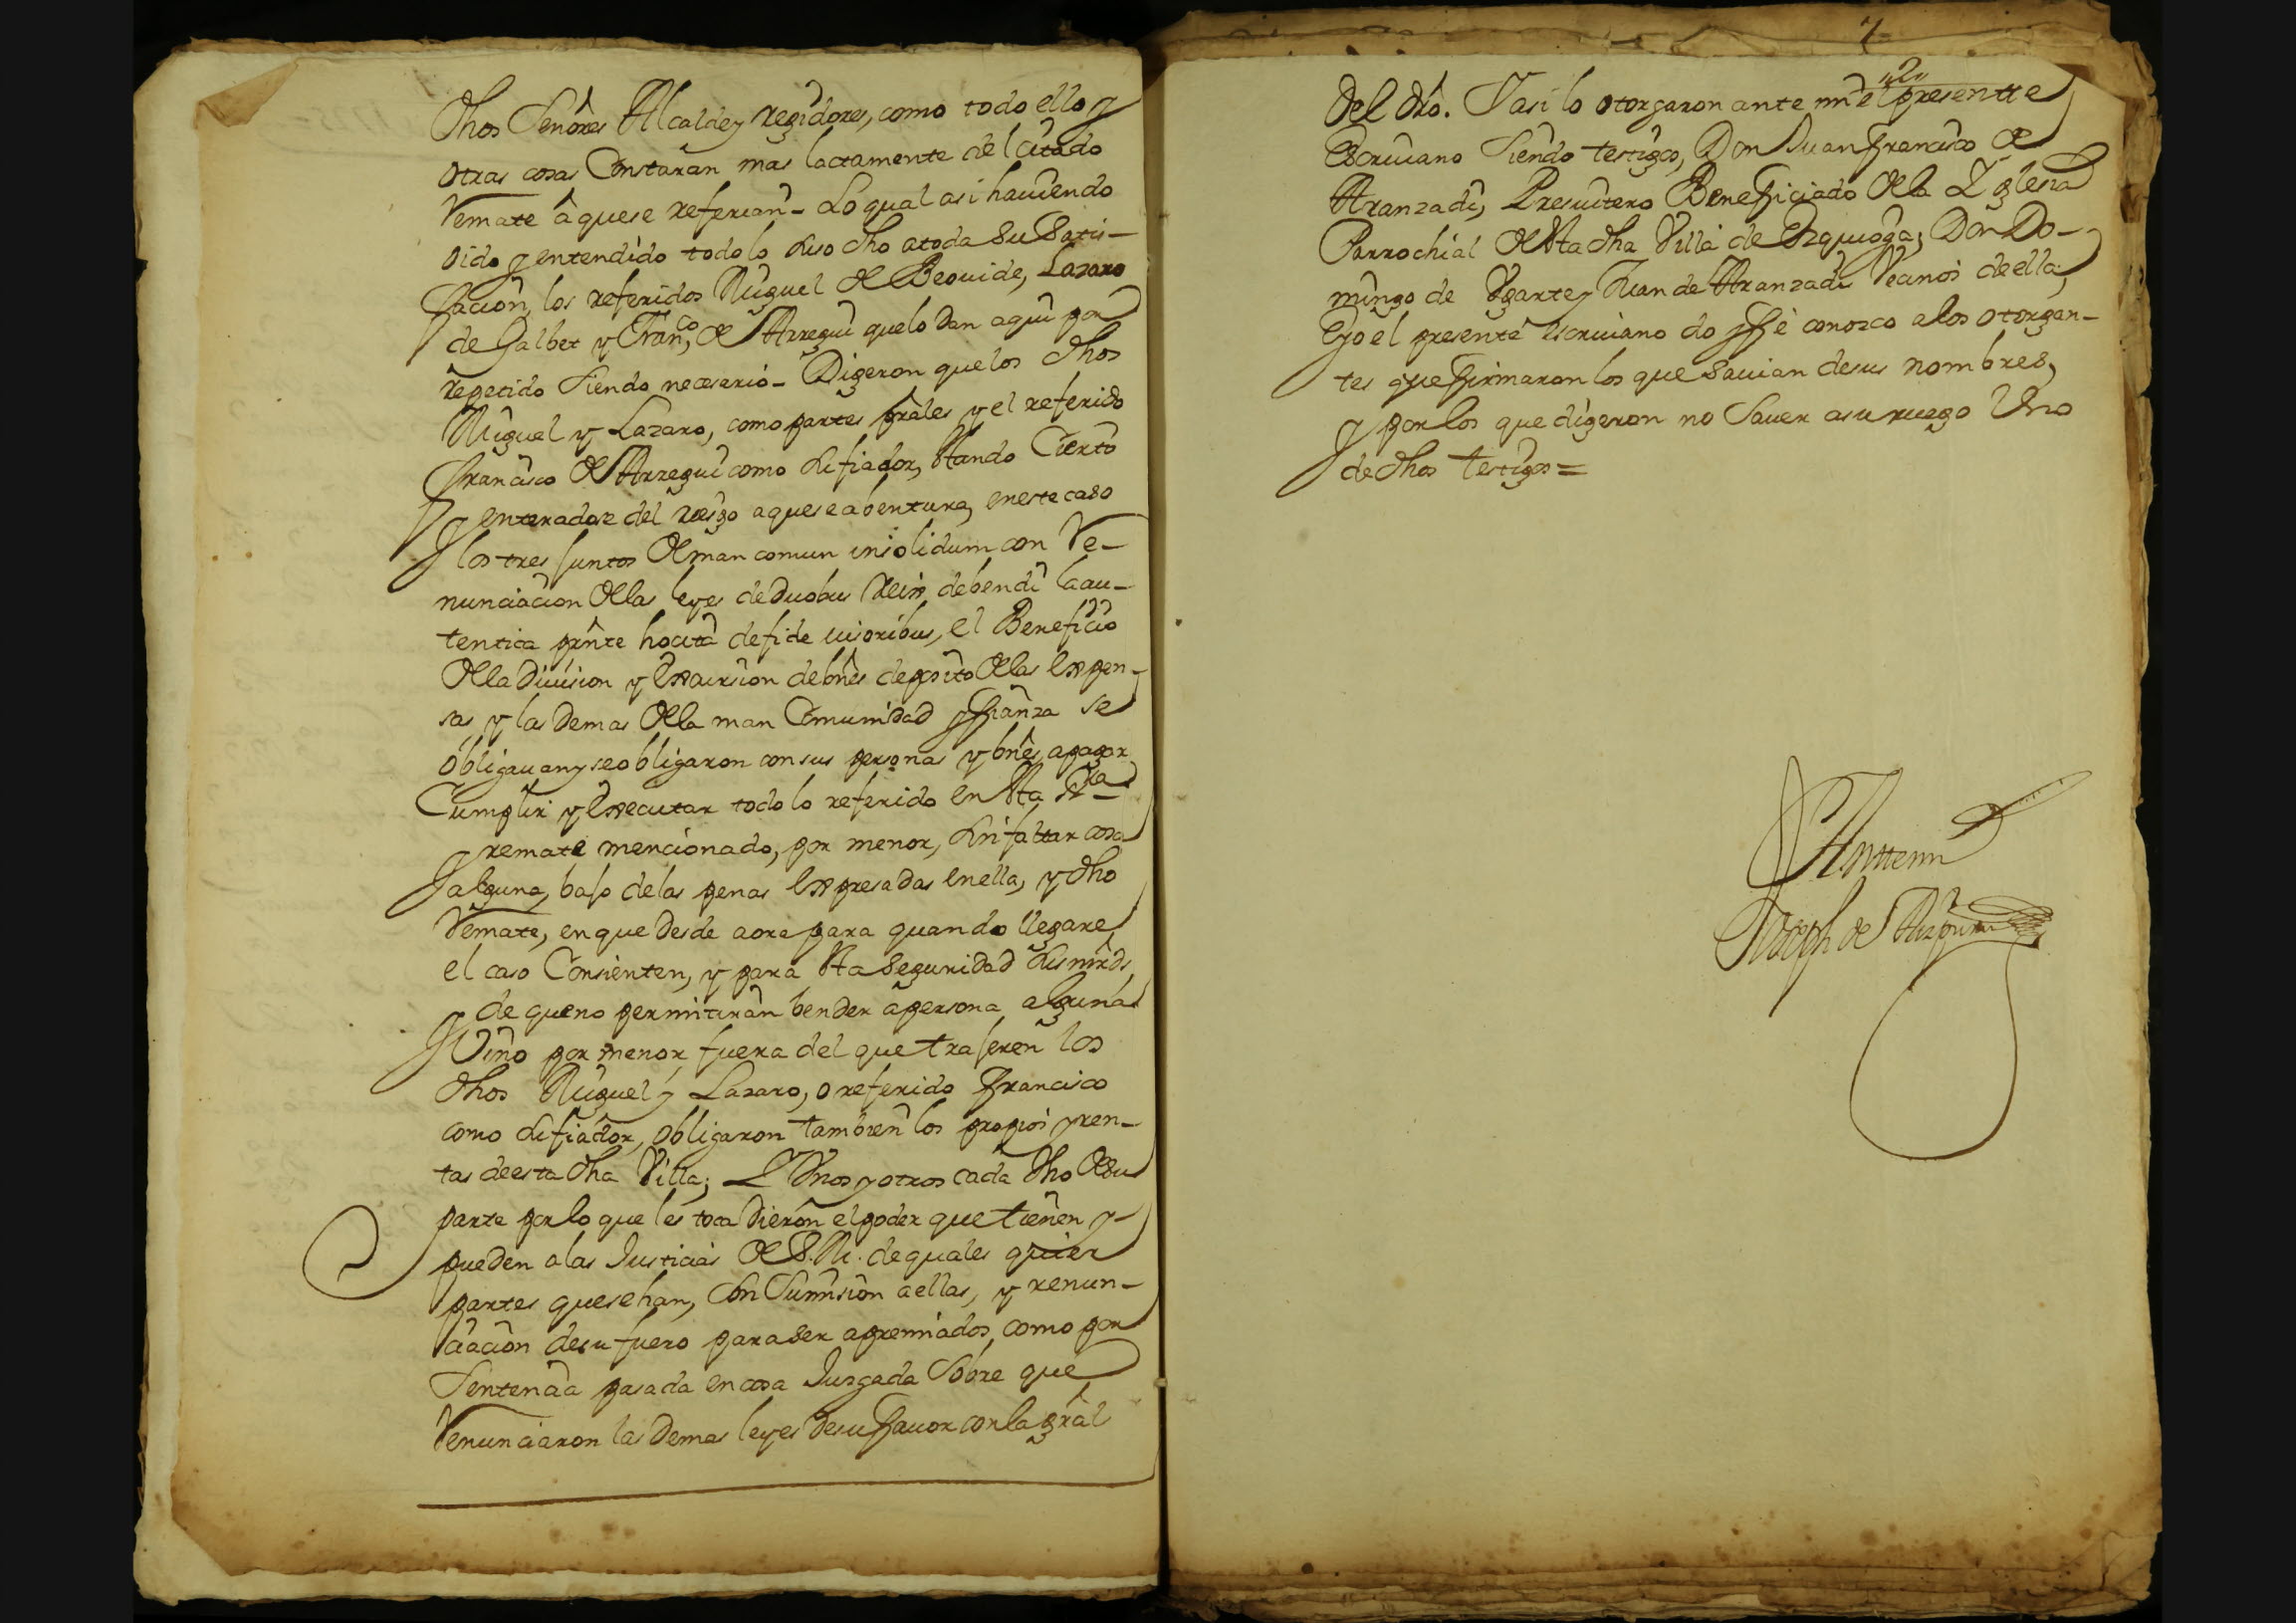 dhos Señores Alcalde y regidores, como todo ello y
otras cosas Constaràn mas lactamente del citado
remate à que se referian - Lo qual asi haviendo
oido y entendido todo lo suso dho a toda su satis-
facion, los referidos Miguel de Beovide, Lazaro
de Galbet y Franco, de Arregui que lo dan aqui por
repetido siendo necesario - Digeron que los dhos
Miguel y Lazaro, como partes prâles y el referido
Francisco de Arregui como su fiador, stando Cierto
y enteradose del riesgo a que se abentura, en este caso
los tres juntos de man comun insolidum con re-
nunciacion de las leyes de duobus reix debendi la au-
tentica prnte hocita de fide iusoribus, el Beneficio
de la division y excursion de bnes deposito de las expen-
sas y las demas de la man Comunidad y fianza se
obligavan y se obligaron con sus personas y bnes, a pagar
Cumplir y executar todo lo referido en sta sra
y remate mencionado, por menor, sin faltar cosa
alguna, bajo de las penas expresadas en ella, y dho
remate, en que desde aora para quando llegare
el caso Consienten, y para sta seguridad sus mrds
y de que no permitiràn bender à persona alguna
Vino por menor, fuera del que trajeren los
dhos Miguel y Lazaro, o referido Francisco
como su fiador, obligaron tambien los propios y ren-
tas de esta dha Villa; E Unos y otros cada Uno de su
parte por lo que les toca dieron el poder que tienen y
pueden a las Justicias de S.M. de quales quier
partes que sehan, con sumision a ellas, y renun-
ciacion de su fuero para ser apremiados, como por
sentencia pasada en cosa Juzgada sobre que
renunciaron las demas leyes de su favor con la gral
2
del dro. Y asi lo otorgaron ante mi el presentte
Escrivano siendo testigos, Don Juan Francisco de
Aranzadi, Presvitero Beneficiado de la Yglesia
Parrochial de sta dha Villa de Ezquioga, Don Do-
mingo de Ugarte y Juan de Aranzadi Vecinos de ella,
E yo el presente escrivano doy fê conozco a los otorgan-
tes que firmaron los que savian de sus nombres,
y por los que digeron no saver a su ruego Uno
de dhos testigos =
Anttemi
Joseph de